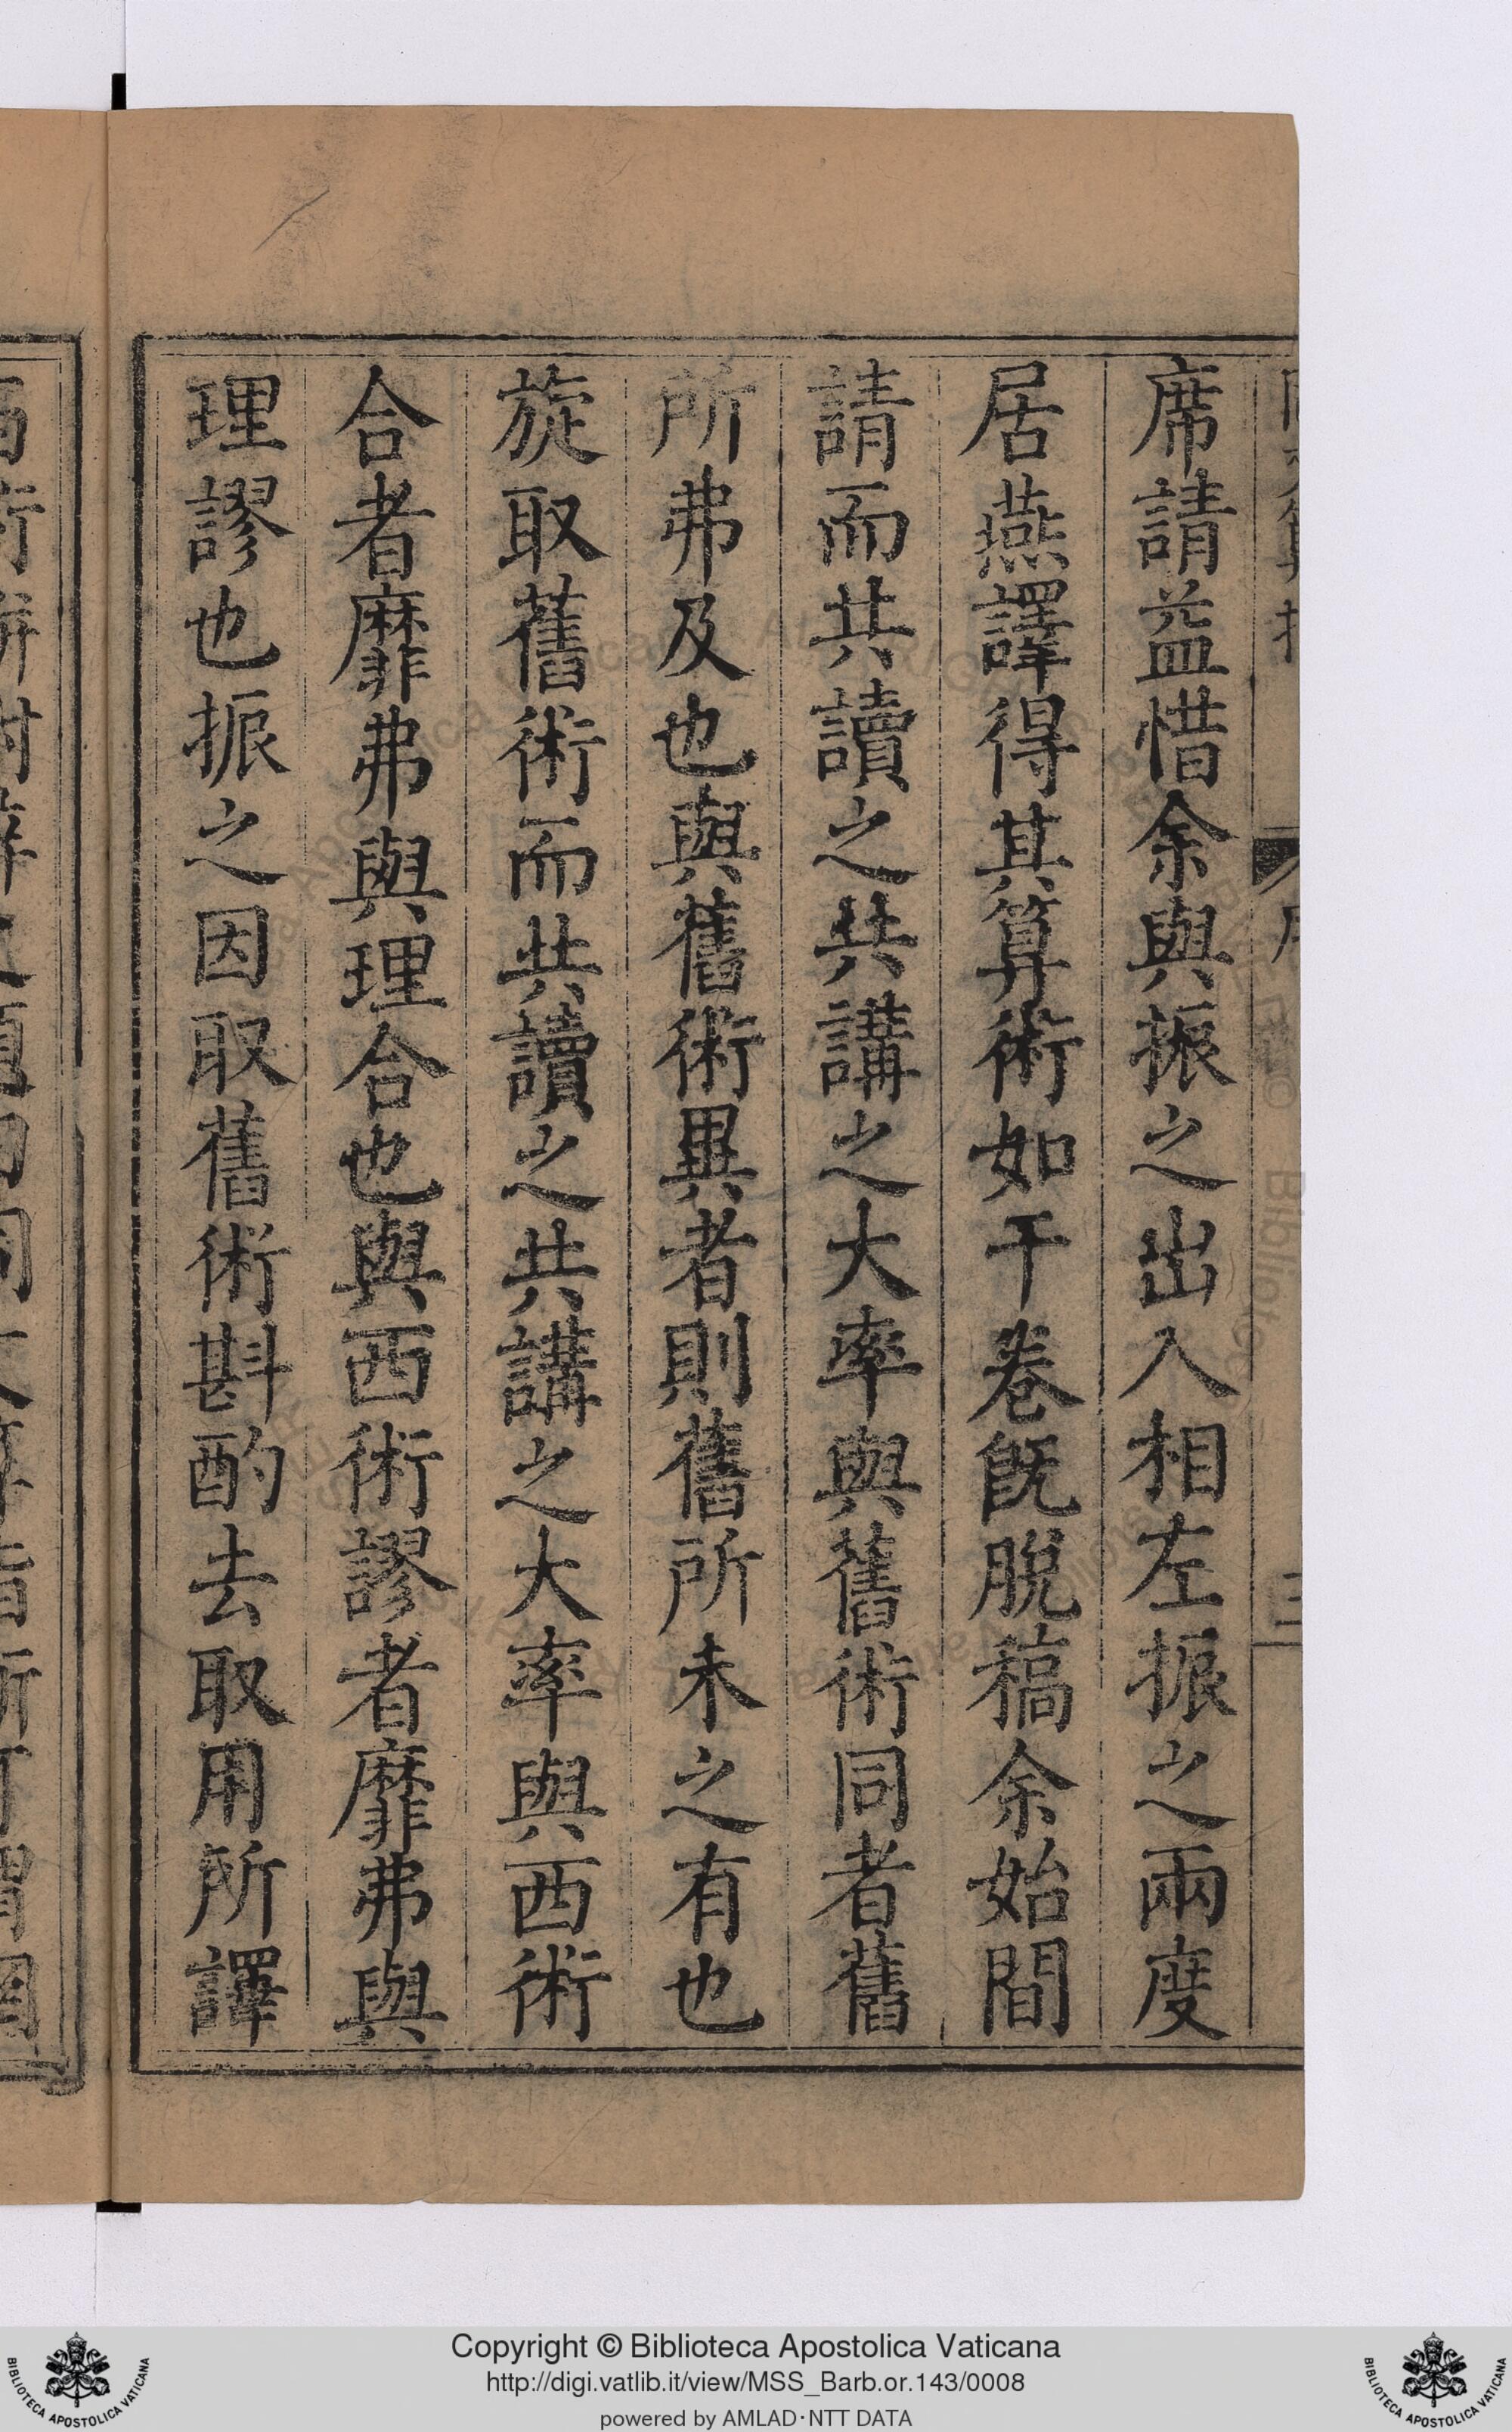 席請益惜余與振之出入相左振之兩度
居燕譯得其算術如干卷旣脫稿余始間
請而共讀之共講之大率與舊術同者舊
所弗及也與舊術異者則舊所未之有也
旋取舊術而共讀之共講之大率與西術
合者靡弗與理合也與西術謬者靡弗與
理謬也振之因取舊術斟酌去取用所譯
Copyright © Biblioteca Apostolica Vaticana
http://digi.vatlib.it/view/MSS_Barb.or.143/0008
powered by AMLAD·NTT DATA
BIBLIOTECA APOSTOLICA VATICANA
BIBLIOTECA APOSTOLICA VATICANA